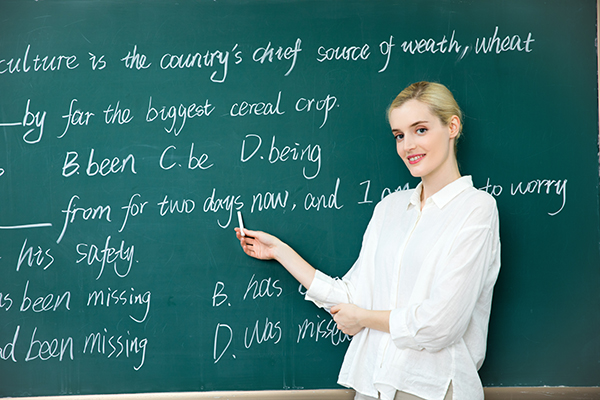 culture is the country's chief source of weath, wheat
by far the biggest cereal crop.
B. been C. be D. being
from for two days now, and I am to worry
his safety.
been missing B. has
D. was misse
been missing